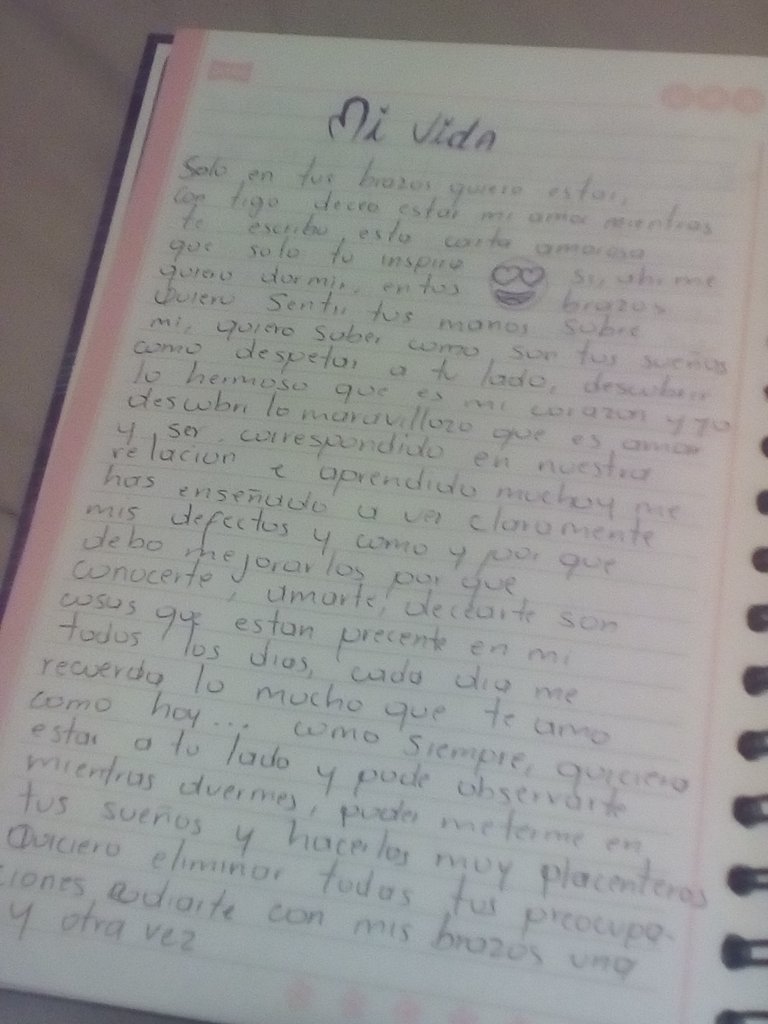 Mi vida
Solo en tus brazos quiero estar,
con tigo deceo estar mi amor mientras
te escribo esta carta amorosa
que solo tu inspira si, ahi me
quiero dormir, en tus brazos
Quiero Sentir tus manos sobre
mi, quiero saber como son tus sueños
como despetar a tu lado, descubrir
lo hermoso que es mi corazon y yo
descubri lo maravillozo que es amar
y ser correspondido en nuestra
relacion e aprendido mucho y me
has enseñado a ver claramente
mis defectos y como y por que
debo mejorarlos por que
conocerte, amarte, decearte son
cosas que estan precente en mi
todos los dias, cada dia me
recuerda lo mucho que te amo
como hoy... como siempre, quiciera
estar a tu lado y pode observarte
mientras duermes, poder meterme en
tus sueños y hacerlos muy placenteros
Quiciero eliminar todas tus preocupa-
ciones rodiarte con mis brazos una
y otra vez